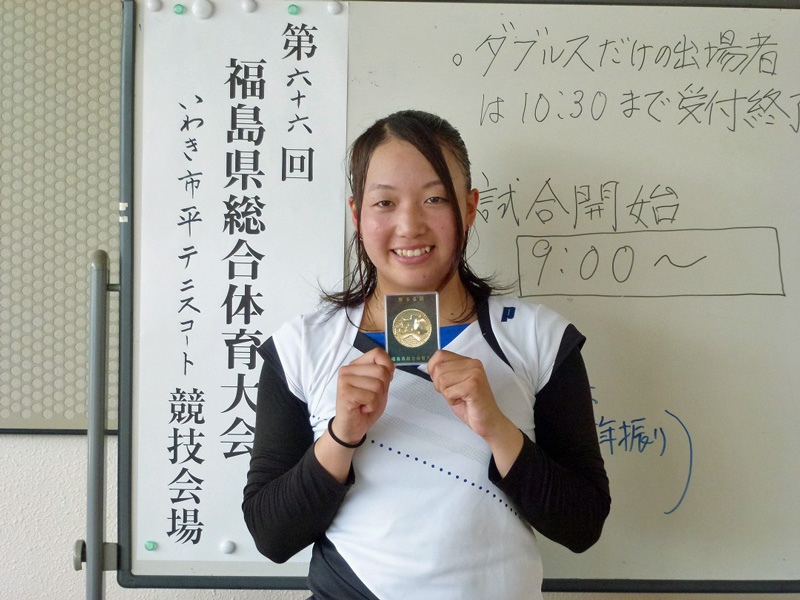 第六十六回
福島県総合体育大会
いわき市平テニスコート 競技会場
。ダブルスだけの出場者
は10:30まで受付終了
試合開始
9:00〜
年振り)
P